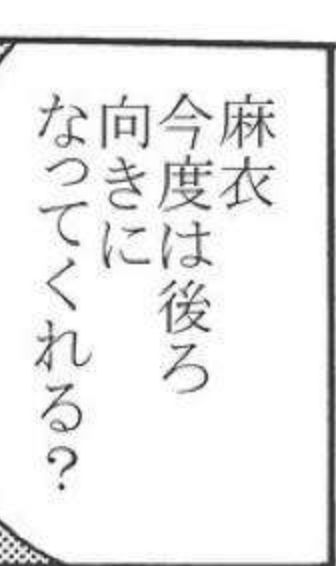 麻衣
今度は後ろ
向きに
なってくれる？